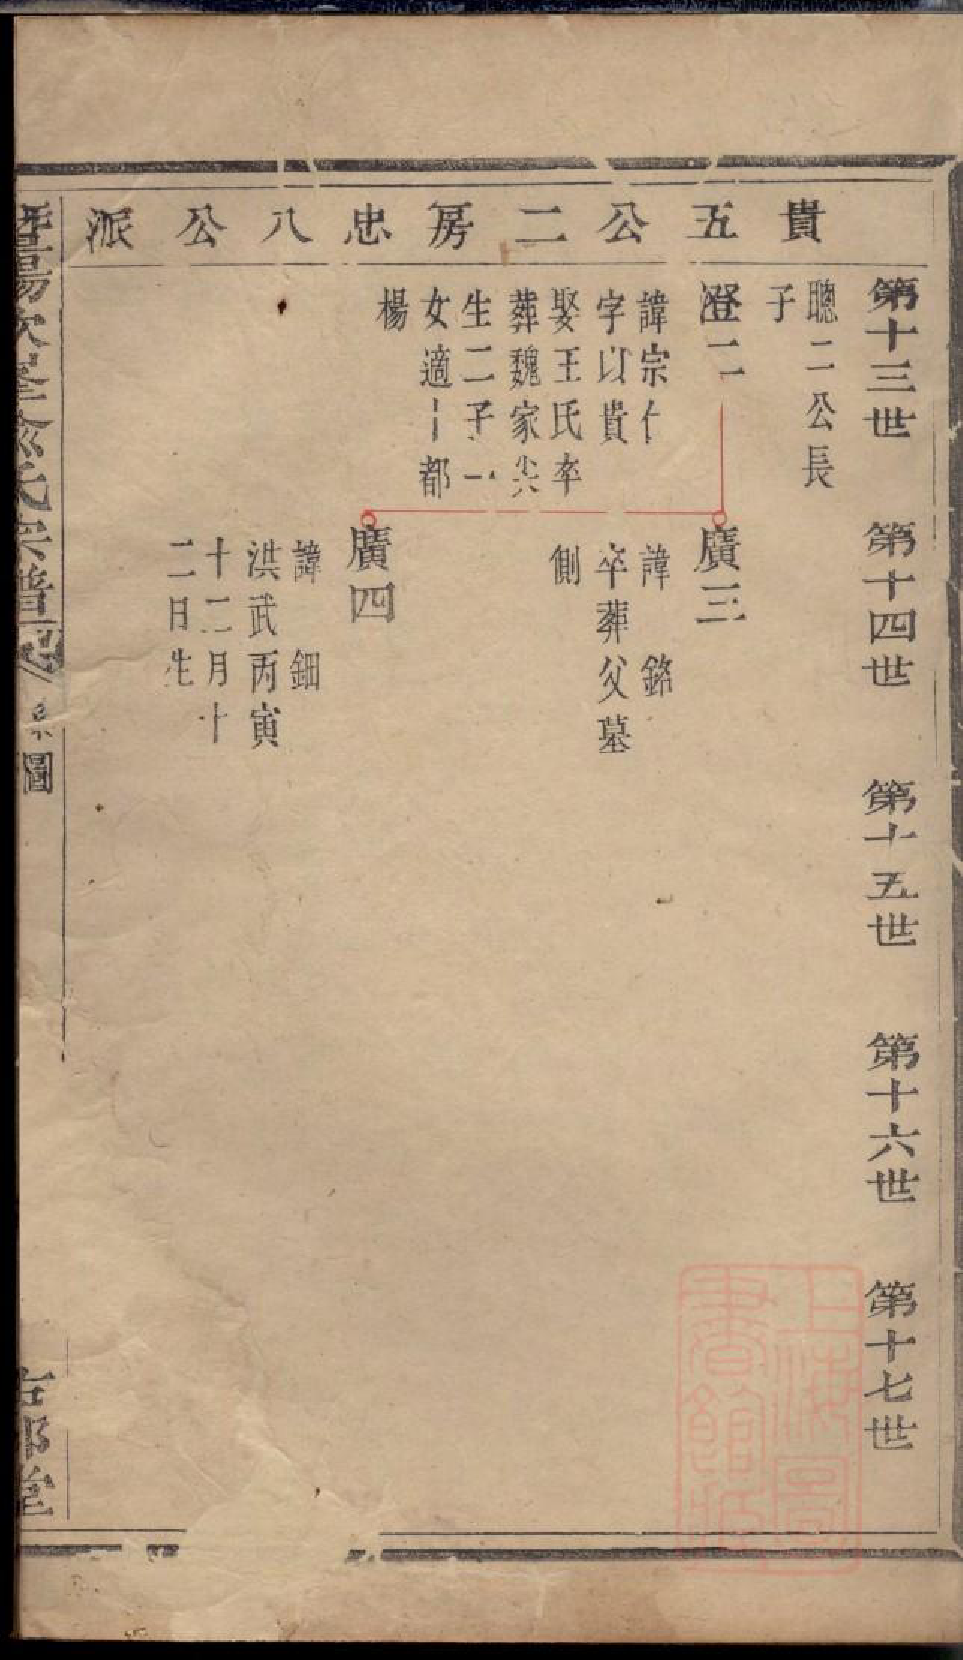 貴五公二房忠八公派
第十三世
第十四世
第十五世
第十六世
第十七世
聰二公長
子
澄二
諱宗仁
字以貴
娶王氏卒
葬魏家尖
生二子一
女適十都
楊
廣三
諱 銘
卒葬父墓
側
廣四
諱 鈿
洪武丙寅
十二月十
二日生
氏宗譜
系圖
堂
上海圖
書館藏